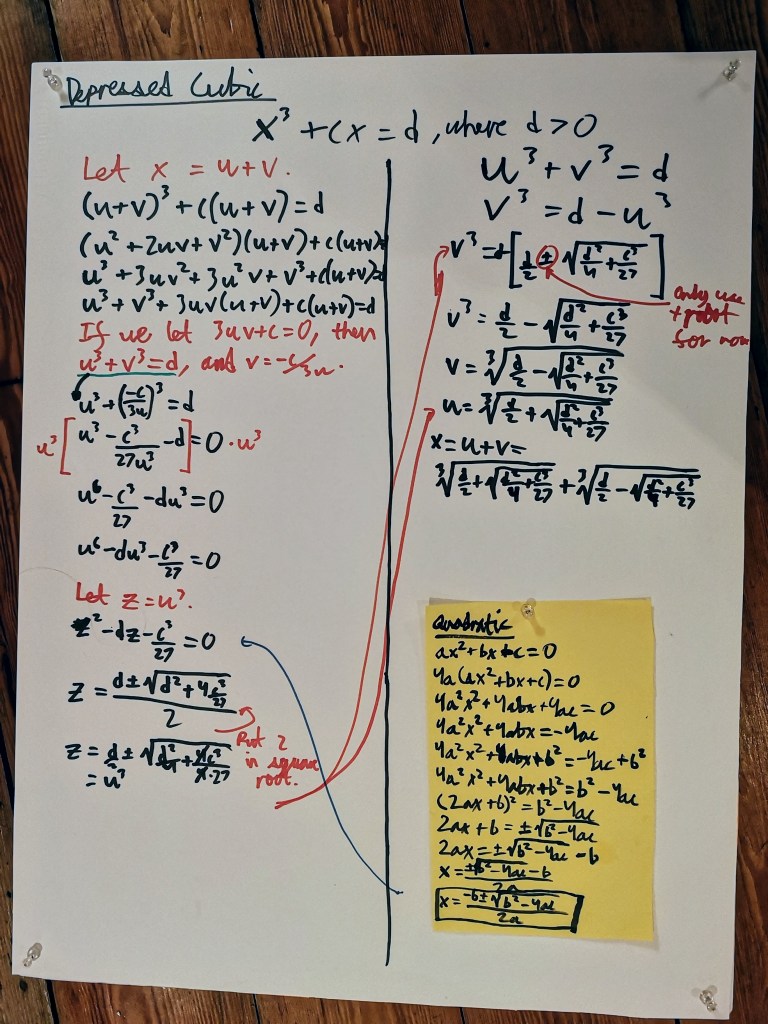 Depressed Cubic
x³ + cx = d, where d > 0
Let x = u + v.
(u+v)³ + c(u+v) = d
(u² + 2uv + v²)(u+v) + c(u+v)=
u³ + 3uv² + 3u²v + v³ + c(u+v)=d
u³ + v³ + 3uv(u+v) + c(u+v)=d
If we let 3uv+c=0, then
u³+v³=d, and v=-c/3u.
u³ + (-c/3u)³ = d
u³ [u³ - c³/27u³ - d] = 0 · u³
u⁶ - c³/27 - du³ = 0
u⁶ - du³ - c³/27 = 0
Let z = u³.
z² - dz - c³/27 = 0
z = (d ± √(d² + 4c³/27))/2
Put 2
in square
root.
z = d/2 ± √(d²/4 + 4c³/4·27)
= u³
u³ + v³ = d
v³ = d - u³
v³ = d - [d/2 ± √(d²/4 + c³/27)]
only use
+ part
for now
v³ = d/2 - √(d²/4 + c³/27)
v = ³√(d/2 - √(d²/4 + c³/27))
u = ³√(d/2 + √(d²/4 + c³/27))
x = u + v =
³√(d/2 + √(d²/4 + c³/27)) + ³√(d/2 - √(d²/4 + c³/27))
Quadratic
ax² + bx + c = 0
4a(ax² + bx + c) = 0
4a²x² + 4abx + 4ac = 0
4a²x² + 4abx = -4ac
4a²x² + 4abx + b² = -4ac + b²
4a²x² + 4abx + b² = b² - 4ac
(2ax + b)² = b² - 4ac
2ax + b = ±√(b² - 4ac)
2ax = ±√(b² - 4ac) - b
x = (±√(b² - 4ac) - b)/2a
x = (-b ± √(b² - 4ac))/2a